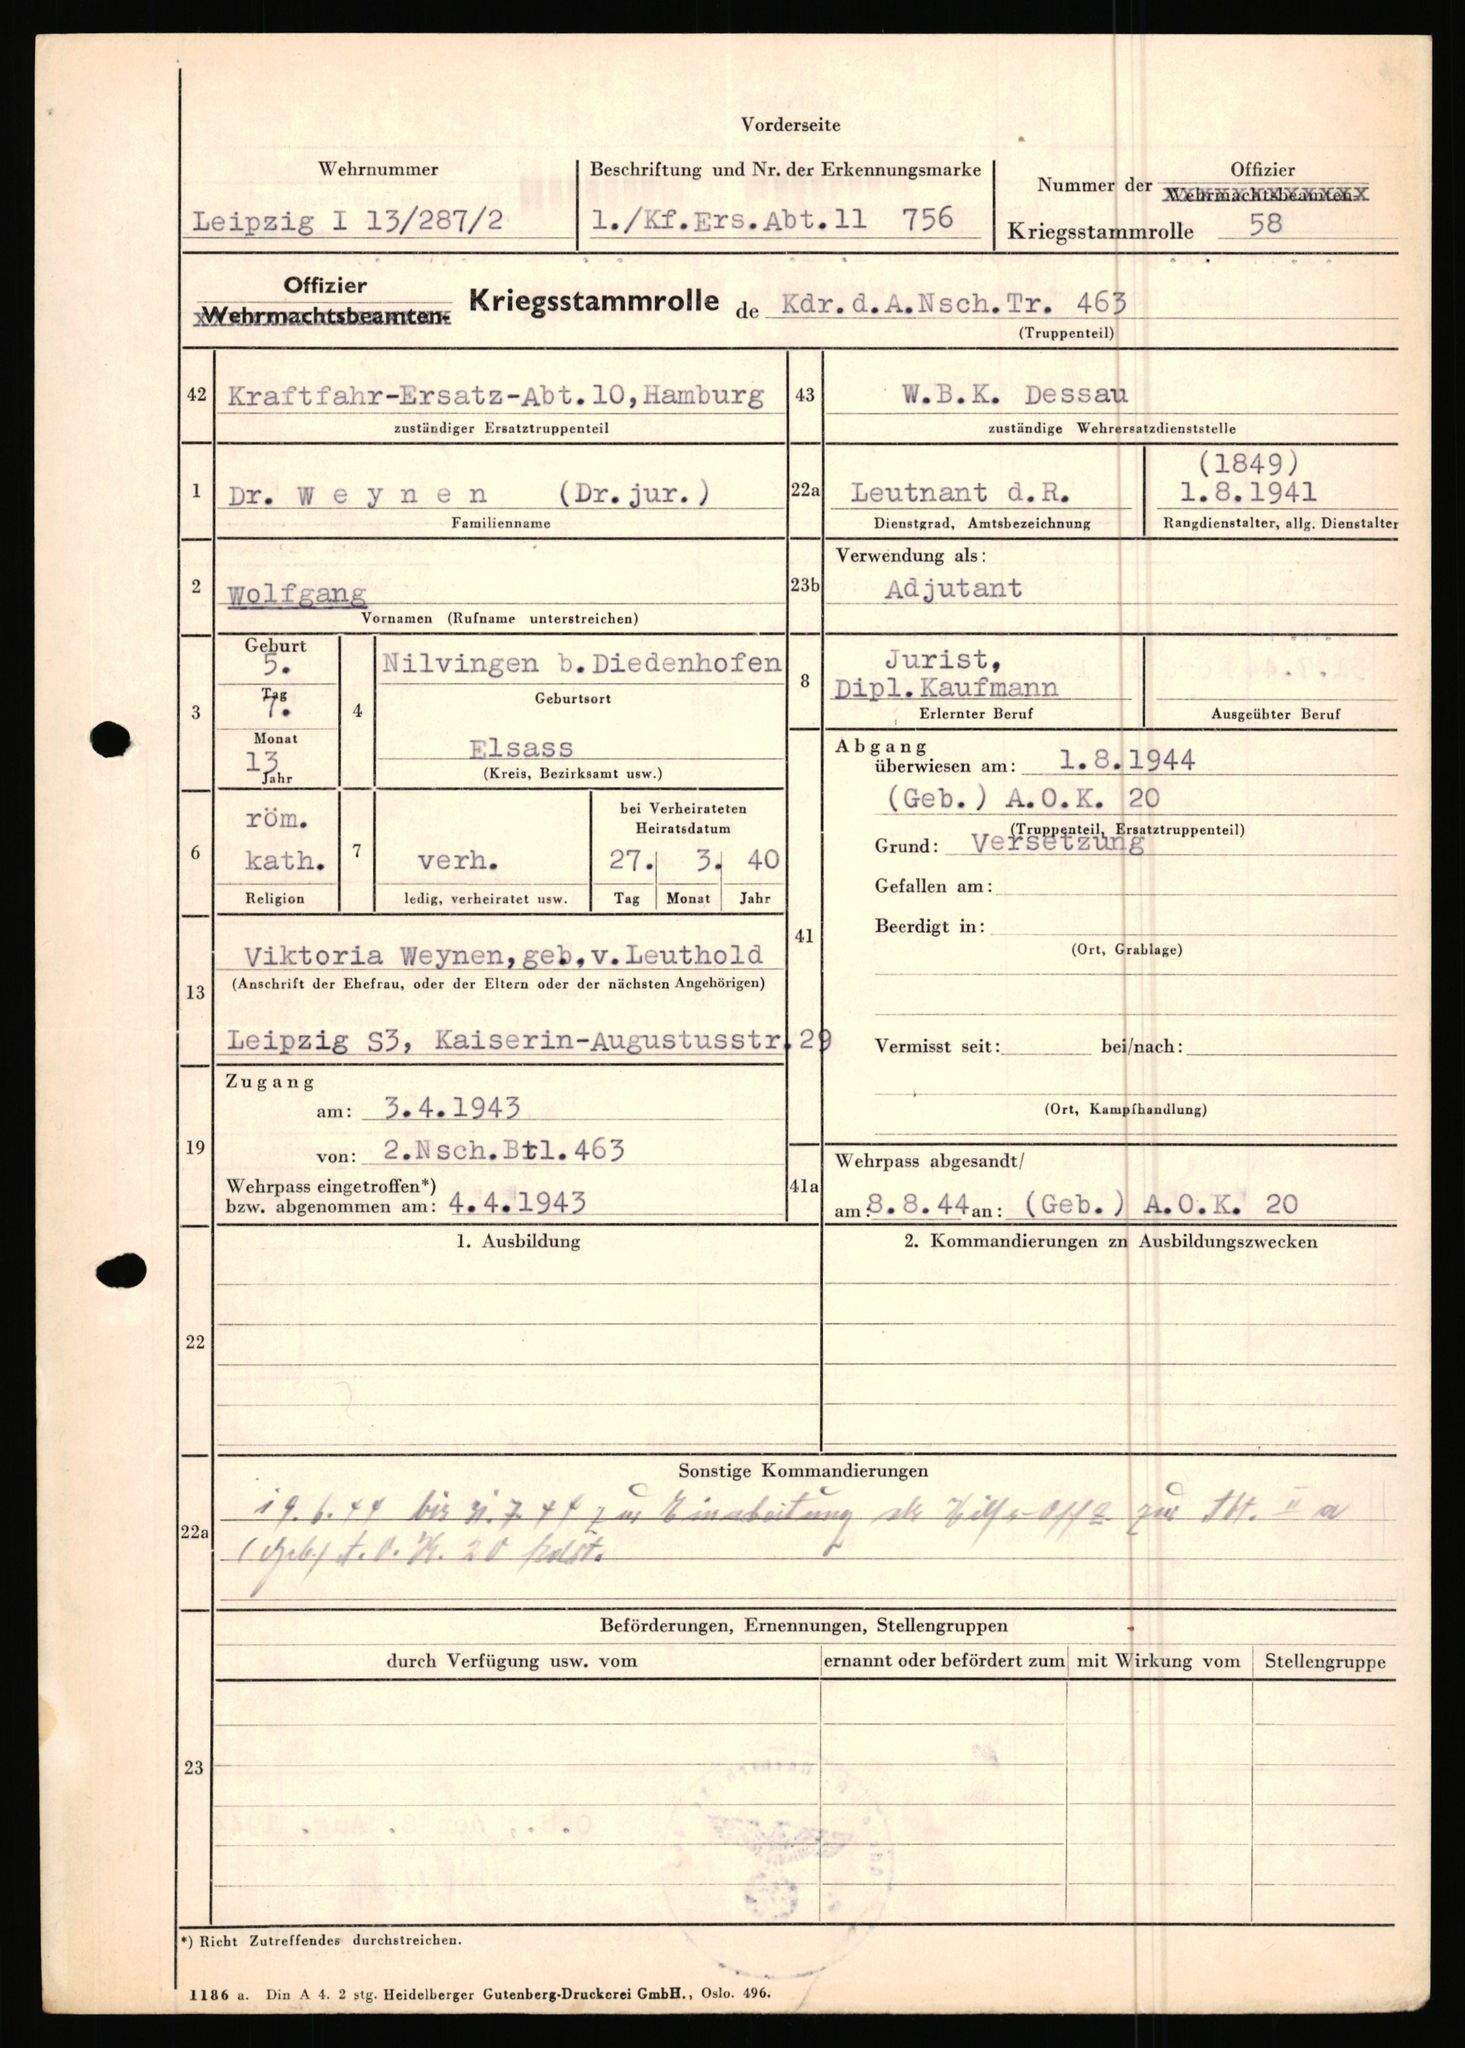 Vorderseite
Wehrnummer
Leipzig I 13/287/2
Beschriftung und Nr. der Erkennungsmarke
1./Kf.Ers.Abt.11 756
Nummer der Offizier
Wehrmachtsbeamten-
Kriegsstammrolle 58
Offizier
Wehrmachtsbeamten-
Kriegsstammrolle de Kdr.d.A.Nsch.Tr. 463
(Truppenteil)
42 Kraftfahr-Ersatz-Abt.10,Hamburg
zuständiger Ersatztruppenteil
43 W.B.K. Dessau
zuständige Wehrersatzdienststelle
1 Dr. W e y n e n (Dr.jur.)
Familienname
22a Leutnant d.R.
Dienstgrad, Amtsbezeichnung
(1849)
1.8.1941
Rangdienstalter, allg. Dienstalter
2 Wolfgang
Vornamen (Rufname unterstreichen)
23b Verwendung als:
Adjutant
3 Geburt
5.
Tag
7.
Monat
13
Jahr
4 Nilvingen b.Diedenhofen
Geburtsort
Elsass
(Kreis, Bezirksamt usw.)
8 Jurist,
Dipl.Kaufmann
Erlernter Beruf
Ausgeübter Beruf
6 röm.
kath.
Religion
7 verh.
ledig, verheiratet usw.
bei Verheirateten
Heiratsdatum
27. 3. 40
Tag Monat Jahr
41 Abgang
überwiesen am: 1.8.1944
(Geb.) A.O.K. 20
(Truppenteil, Ersatztruppenteil)
Grund: Versetzung
Gefallen am:
Beerdigt in:
(Ort, Grablage)
Vermisst seit: bei/nach:
(Ort, Kampfhandlung)
13 Viktoria Weynen,geb.v.Leuthold
(Anschrift der Ehefrau, oder der Eltern oder der nächsten Angehörigen)
Leipzig S3, Kaiserin-Augustusstr.29
19 Zugang
am: 3.4.1943
von: 2.Nsch.Btl.463
Wehrpass eingetroffen*)
bzw. abgenommen am: 4.4.1943
41a Wehrpass abgesandt/
am: 8.8.44 an: (Geb.) A.O.K. 20
22 1. Ausbildung
2. Kommandierungen zn Ausbildungszwecken
22a Sonstige Kommandierungen
19.6.44 bis 31.7.44 zur Einarbeitung als Hilfs-Offz. zur Abt. II a
(Geb) A.O.K. 20 kdrt.
23 Beförderungen, Ernennungen, Stellengruppen
durch Verfügung usw. vom
ernannt oder befördert zum
mit Wirkung vom
Stellengruppe
*) Richt Zutreffendes durchstreichen.
1186 a. Din A 4. 2 stg. Heidelberger Gutenberg-Druckerei GmbH., Oslo. 496.